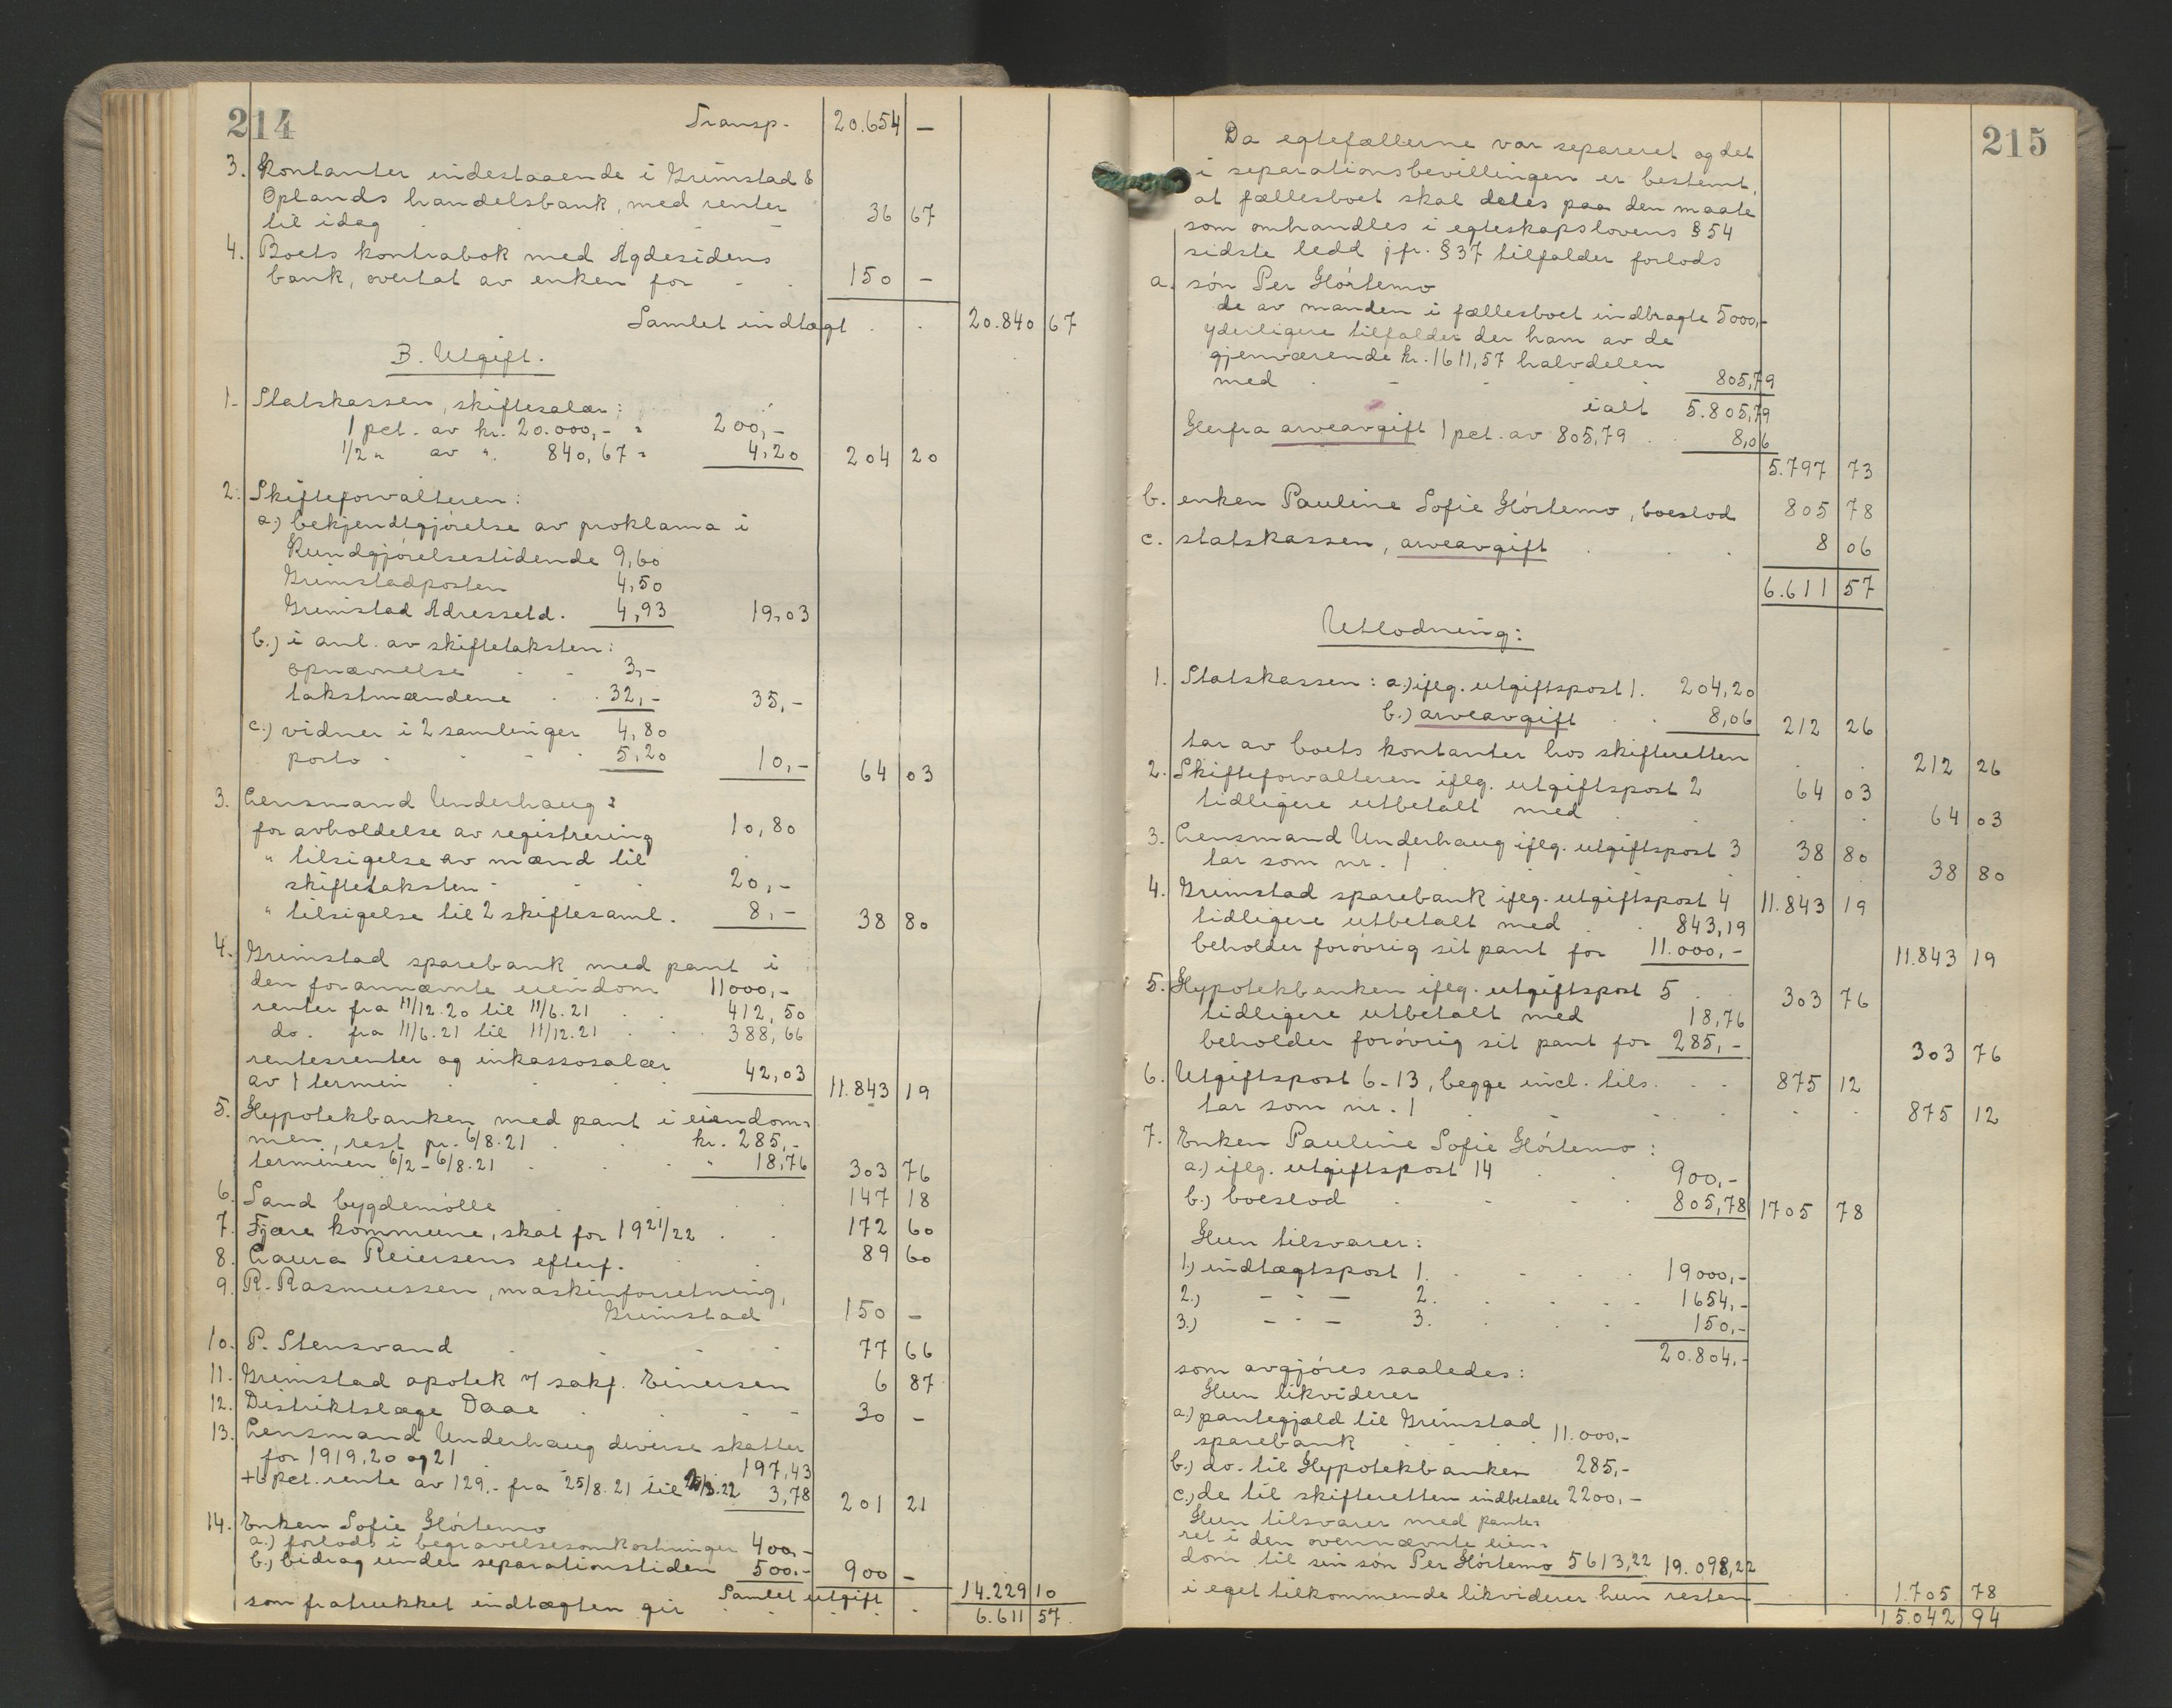 214
Transp. 20.654 –
3. Kontanter indestaaende i Grimstad &
Oplands handelsbank, med renter
til idag . . . 36 67
4. Boets kontrabok med Agdesidens
bank, overtat av enken for - . 150 –
Samlet indtægt . . 20.840 67
B. Utgift.
1. Statskassen, skiftesalær:
1 pct. av kr. 20.000,- = 200,-
1/2 " av " 840,67 = 4,20 204 20
2. Skifteforvalteren:
a.) bekjendtgjørelse av proklama i
Kundgjørelsestidende 9,60
Grimstadposten 4,50
Grimstad Adressetd. 4,93 19,03
b.) i anl. av skiftetaksten:
opnævnelse . - 3,-
takstmændene . . 32,- 35,-
c.) vidner i 2 samlinger 4,80
porto - . . . 5,20 10,- 64 03
3. Lensmand Underhaug:
for avholdelse av registrering 10,80
" tilsigelse av mænd til
skiftetaksten - . . 20,-
" tilsigelse til 2 skiftesaml. 8,- 38 80
4. Grimstad sparebank med pant i
den forannævnte eiendom 11000,-
renter fra 11/12.20 til 11/6.21 . . 412,50
do. fra 11/6.21 til 11/12.21 . . 388,66
rentesrenter og inkassosalær
av 1 termin . . . 42,03 11.843 19
5. Hypotekbanken med pant i eiendom-
men, rest pr. 6/8.21 . . kr. 285,-
terminen 6/2-6/8.21 . . . " 18,76 303 76
6. Sand bygdemølle . . . . 147 18
7. Fjære kommune, skat for 1921/22 . . 172 60
8. Laura Reiersens efterf. . . 89 60
9. R. Rasmussen, maskinforretning,
Grimstad 150 –
10. P. Stensvand . . . . 77 66
11. Grimstad apotek v/ sakf. Einersen 6 87
12. Distriktslæge Daae . . - - 30 –
13. Lensmand Underhaug diverse skatter
for 1919, 20 og 21 197,43
+6 pct. rente av 129.- fra 25/8.21 til /3.22 3,78 201 21
14. Enken Sofie Hórtemo
a.) forlods i begravelsesomkostninger 400,-
b.) bidrag under separationstiden 500.- 900 –
Samlet utgift 14.229 10
som fratrukket indtægten gir . . . . 6.611 57.
215
Da egtefællerne var separeret og det
i separationsbevillingen er bestemt,
at fællesboet skal deles paa den maate
som omhandles i egteskapslovens § 54
sidste ledd jfr. § 37 tilfalder forlods
a. són Per Hórtemo
de av manden i fællesboet indbragte 5000,-
yderligere tilfalder der ham av de
gjenværende kr. 1611,57 halvdelen
med . - - . . 805,79
ialt 5.805,79
Herfra arveavgift 1 pct. av 805,79 . . 8,06
5.797 73
b. enken Pauline Sofie Hórtemo, boeslod 805 78
c. statskassen, arveavgift . . . 8 06
6.611 57
Utlodning:
1. Statskassen: a.) iflg. utgiftspost 1. 204,20
b.) arveavgift . . 8,06 212 26
tar av boets kontanter hos skifteretten . . 212 26
2. Skifteforvalteren iflg. utgiftspost 2 64 03
tidligere utbetalt med . . . 64 03
3. Lensmand Underhaug iflg. utgiftspost 3 38 80
tar som nr. 1 . . . . . 38 80
4. Grimstad sparebank iflg. utgiftspost 4 11.843 19
tidligere utbetalt med . . 843,19
beholder forøvrig sit pant for 11.000,- 11.843 19
5. Hypotekbanken iflg. utgiftspost 5 . . 303 76
tidligere utbetalt med 18,76
beholder forøvrig sit pant for 285,- 303 76
6. Utgiftspost 6-13, begge incl. tils. . . 875 12
tar som nr. 1 . - . . . . 875 12
7. Enken Pauline Sofie Hórtemo:
a.) iflg. utgiftspost 14 . . 900,-
b.) boeslod . - - . 805,78 1705 78
Hun tilsvarer:
1.) indtægtspost 1. . - . . 19000,-
2.) – · – 2. . . . . 1654,-
3.) – · – 3. . . . 150,-
20.804,-
som avgjóres saaledes:
Hun likviderer
a.) pantegjæld til Grimstad
sparebank . . . . 11.000,-
b.) do. til Hypotekbanken 285,-
c.) de til skifteretten indbetalte 2200,-
Hun tilsvarer med pante-
ret i den ovennævnte eien-
dom til sin són Per Hórtemo 5613,22 19.098,22
i eget tilkommende likviderer hun resten . . 1.705 78
15.042 94